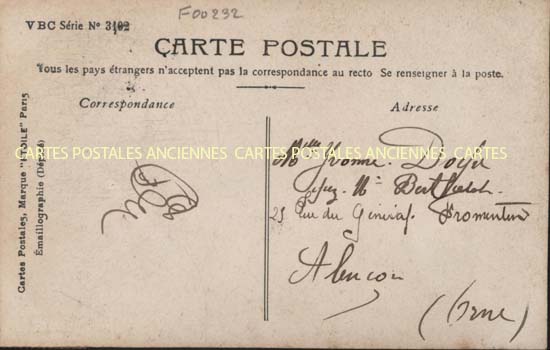 F00232
VBC Série Nº 3102
CARTE POSTALE
Tous les pays étrangers n'acceptent pas la correspondance au recto Se renseigner à la poste.
Correspondance
Adresse
Cartes Postales, Marque "ETOILE" Paris
Émaillographie (Déposé)
CARTES POSTALES ANCIENNES CARTES POSTALES ANCIENNES CARTES POSTALES ANCIENNES
Mlle Yvonne
chez Mme
25 Rue du Général Fromentin
Alençon
(Orne)